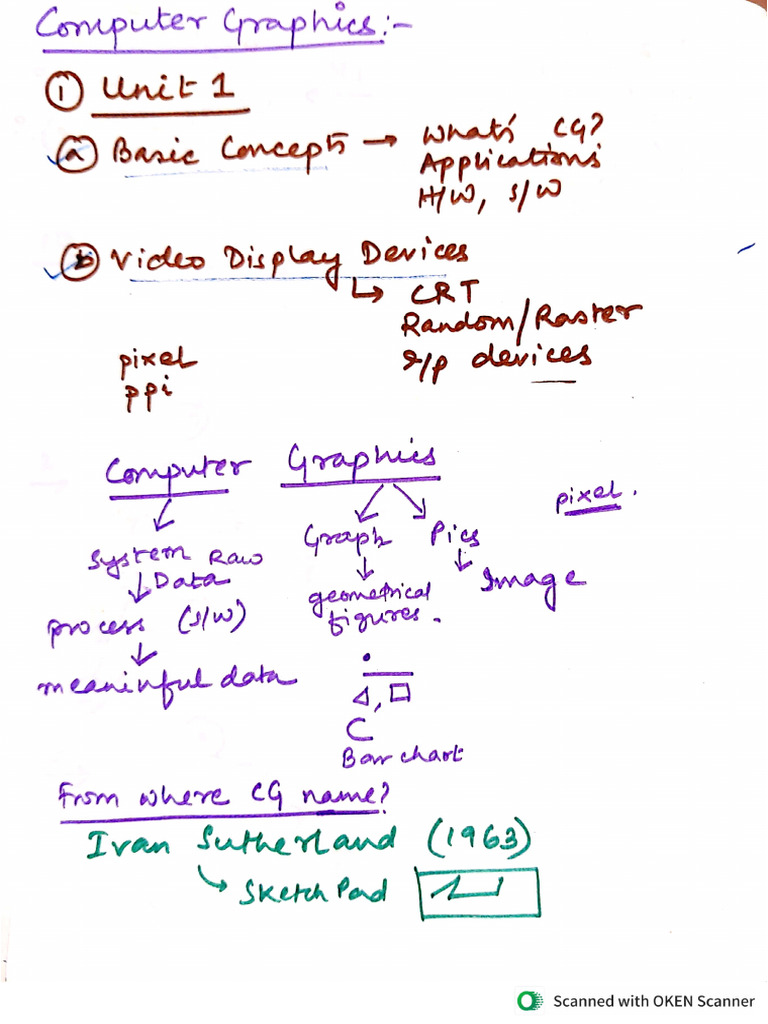 Computer Graphics:-
① Unit 1
ⓐ Basic Concepts → What's CG?
Applications
H/W, S/W
ⓑ Video Display Devices
↳ CRT
Random/Raster
I/p devices
pixel
ppi
Computer Graphics
pixel.
Graph Pics
System Raw
Data
Image
geometrical
figures.
process (S/W)
meaninful data
Bar chart
From where CG name?
Ivan Sutherland (1963)
↳ Sketch Pad
Scanned with OKEN Scanner